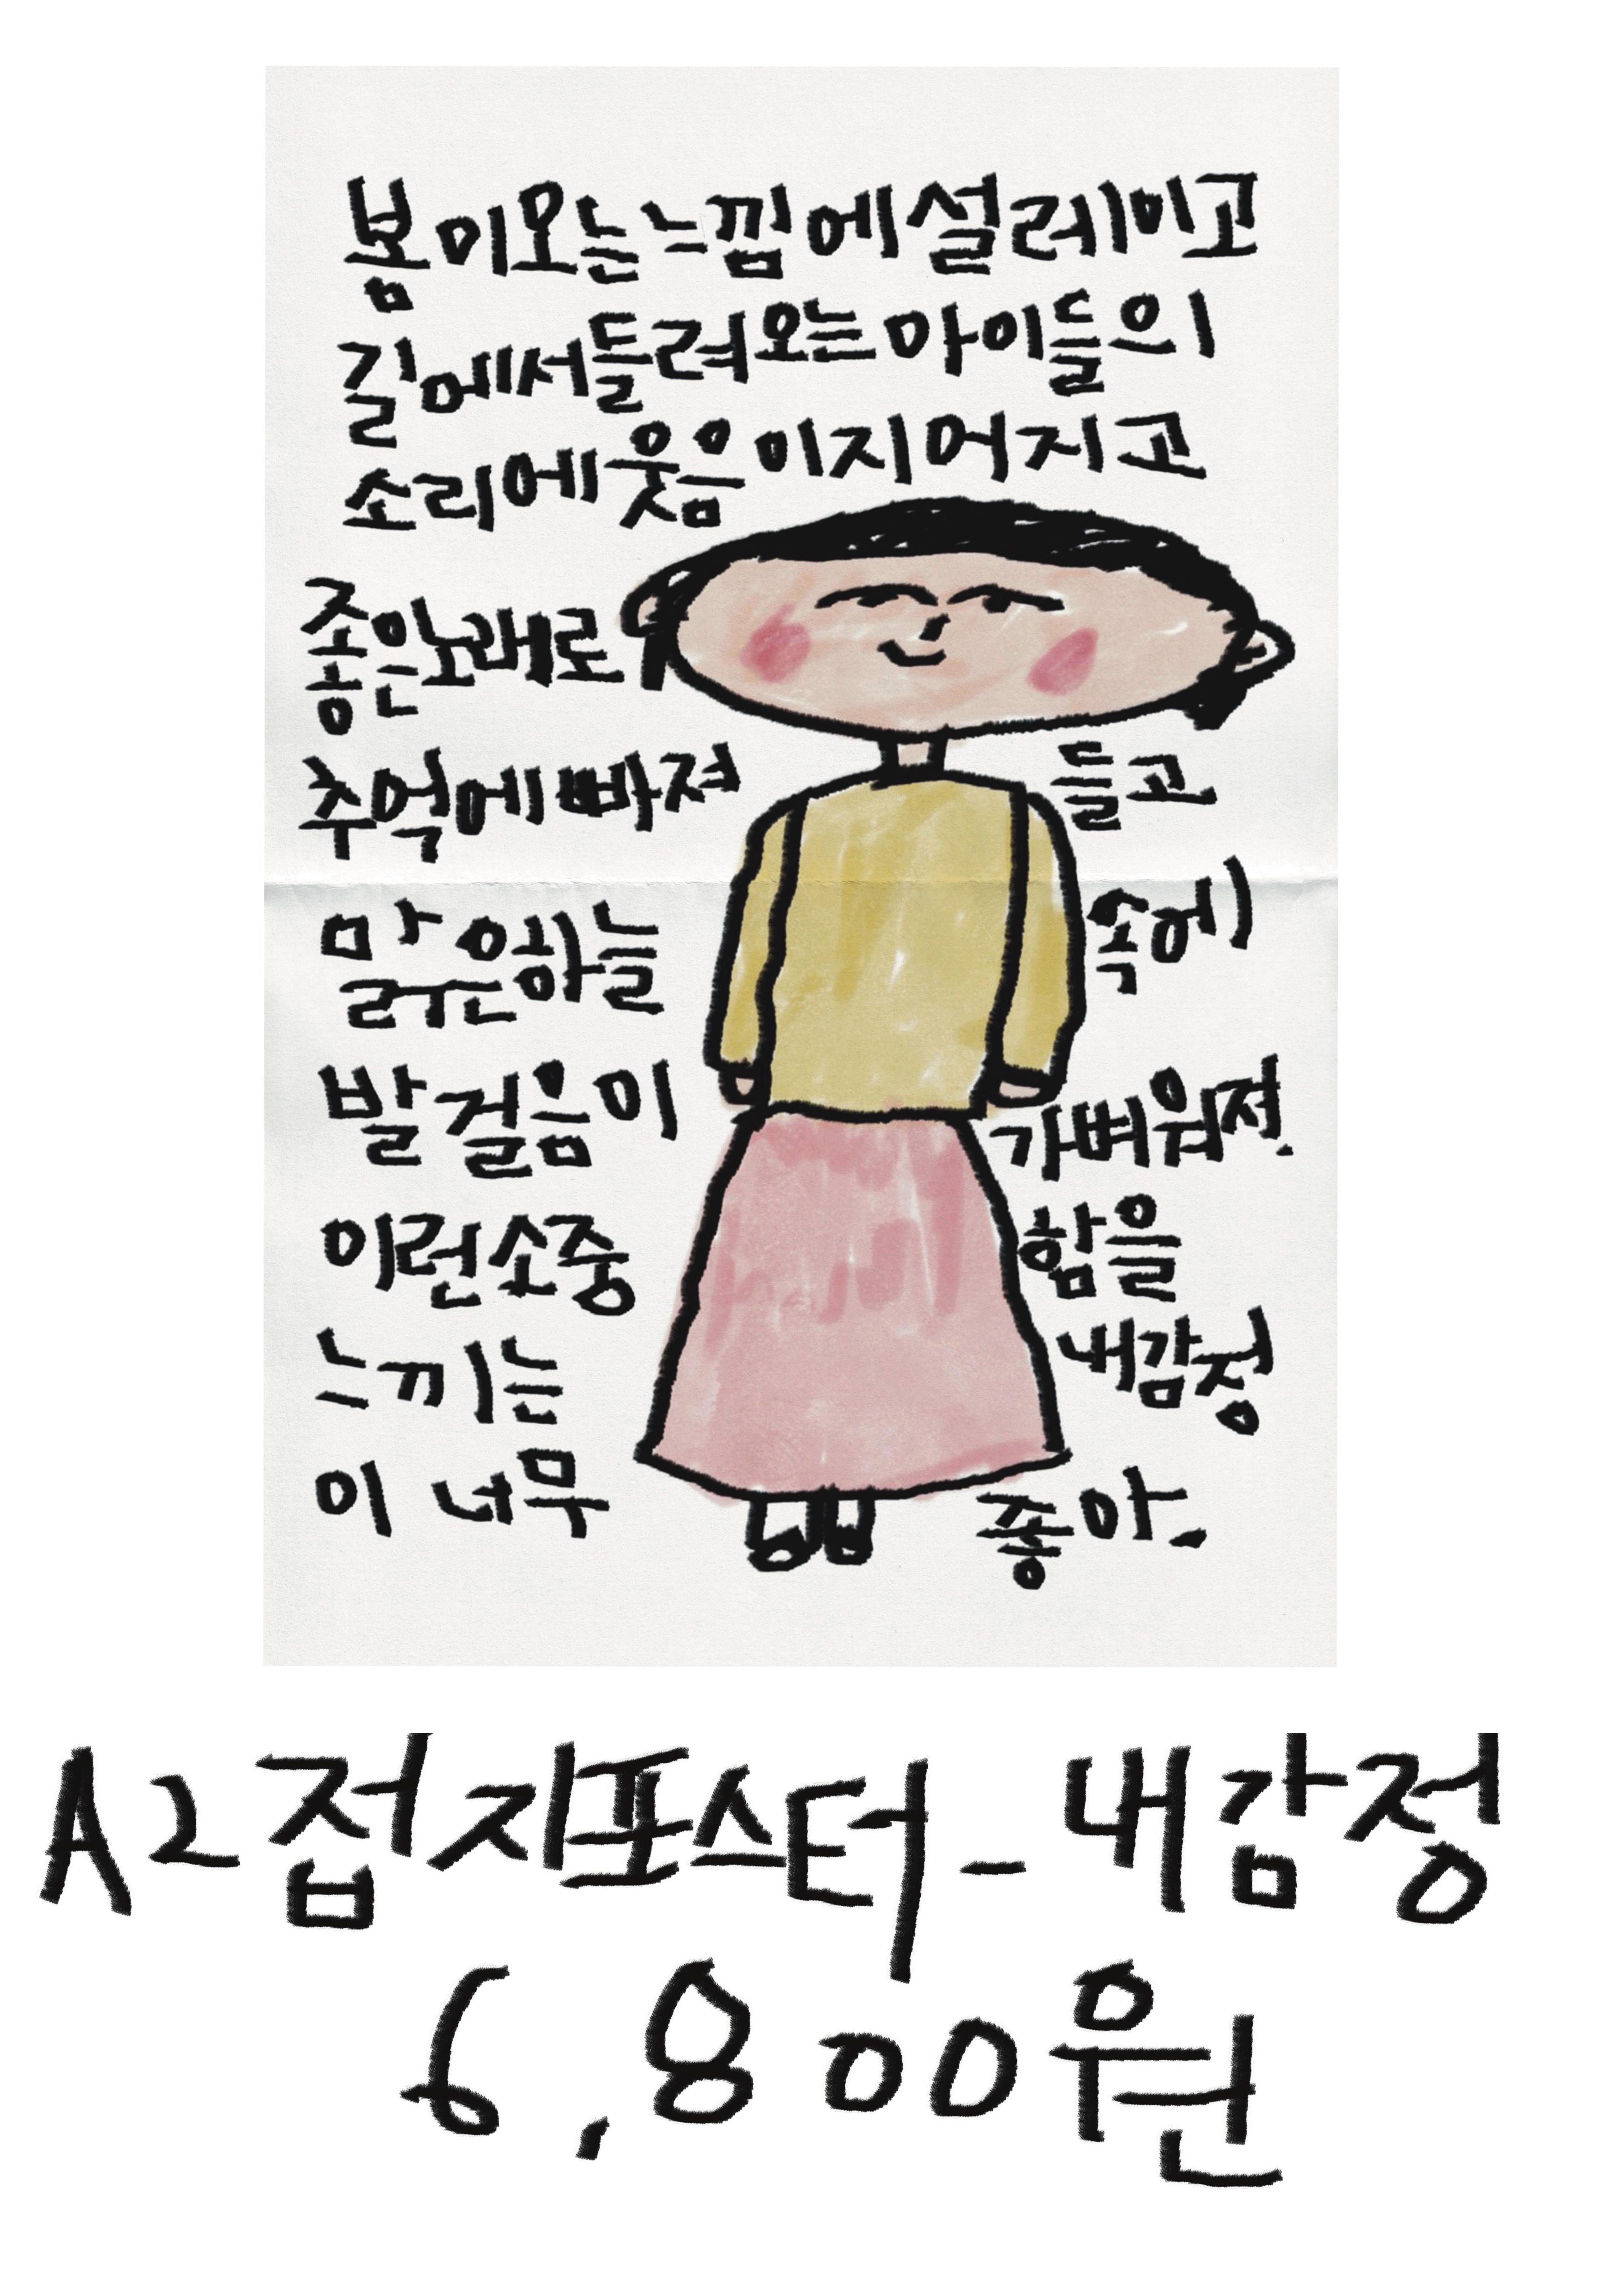 봄이오는느낌에설레이고
길에서들려오는아이들의
소리에웃음이지어지고
좋은노래로
추억에빠져 들고
맑은하늘 속에
발걸음이 가벼워져.
이런소중 함을
느끼는 내감정
이 너무 좋아.
A2접지포스터-내감정
6,800원